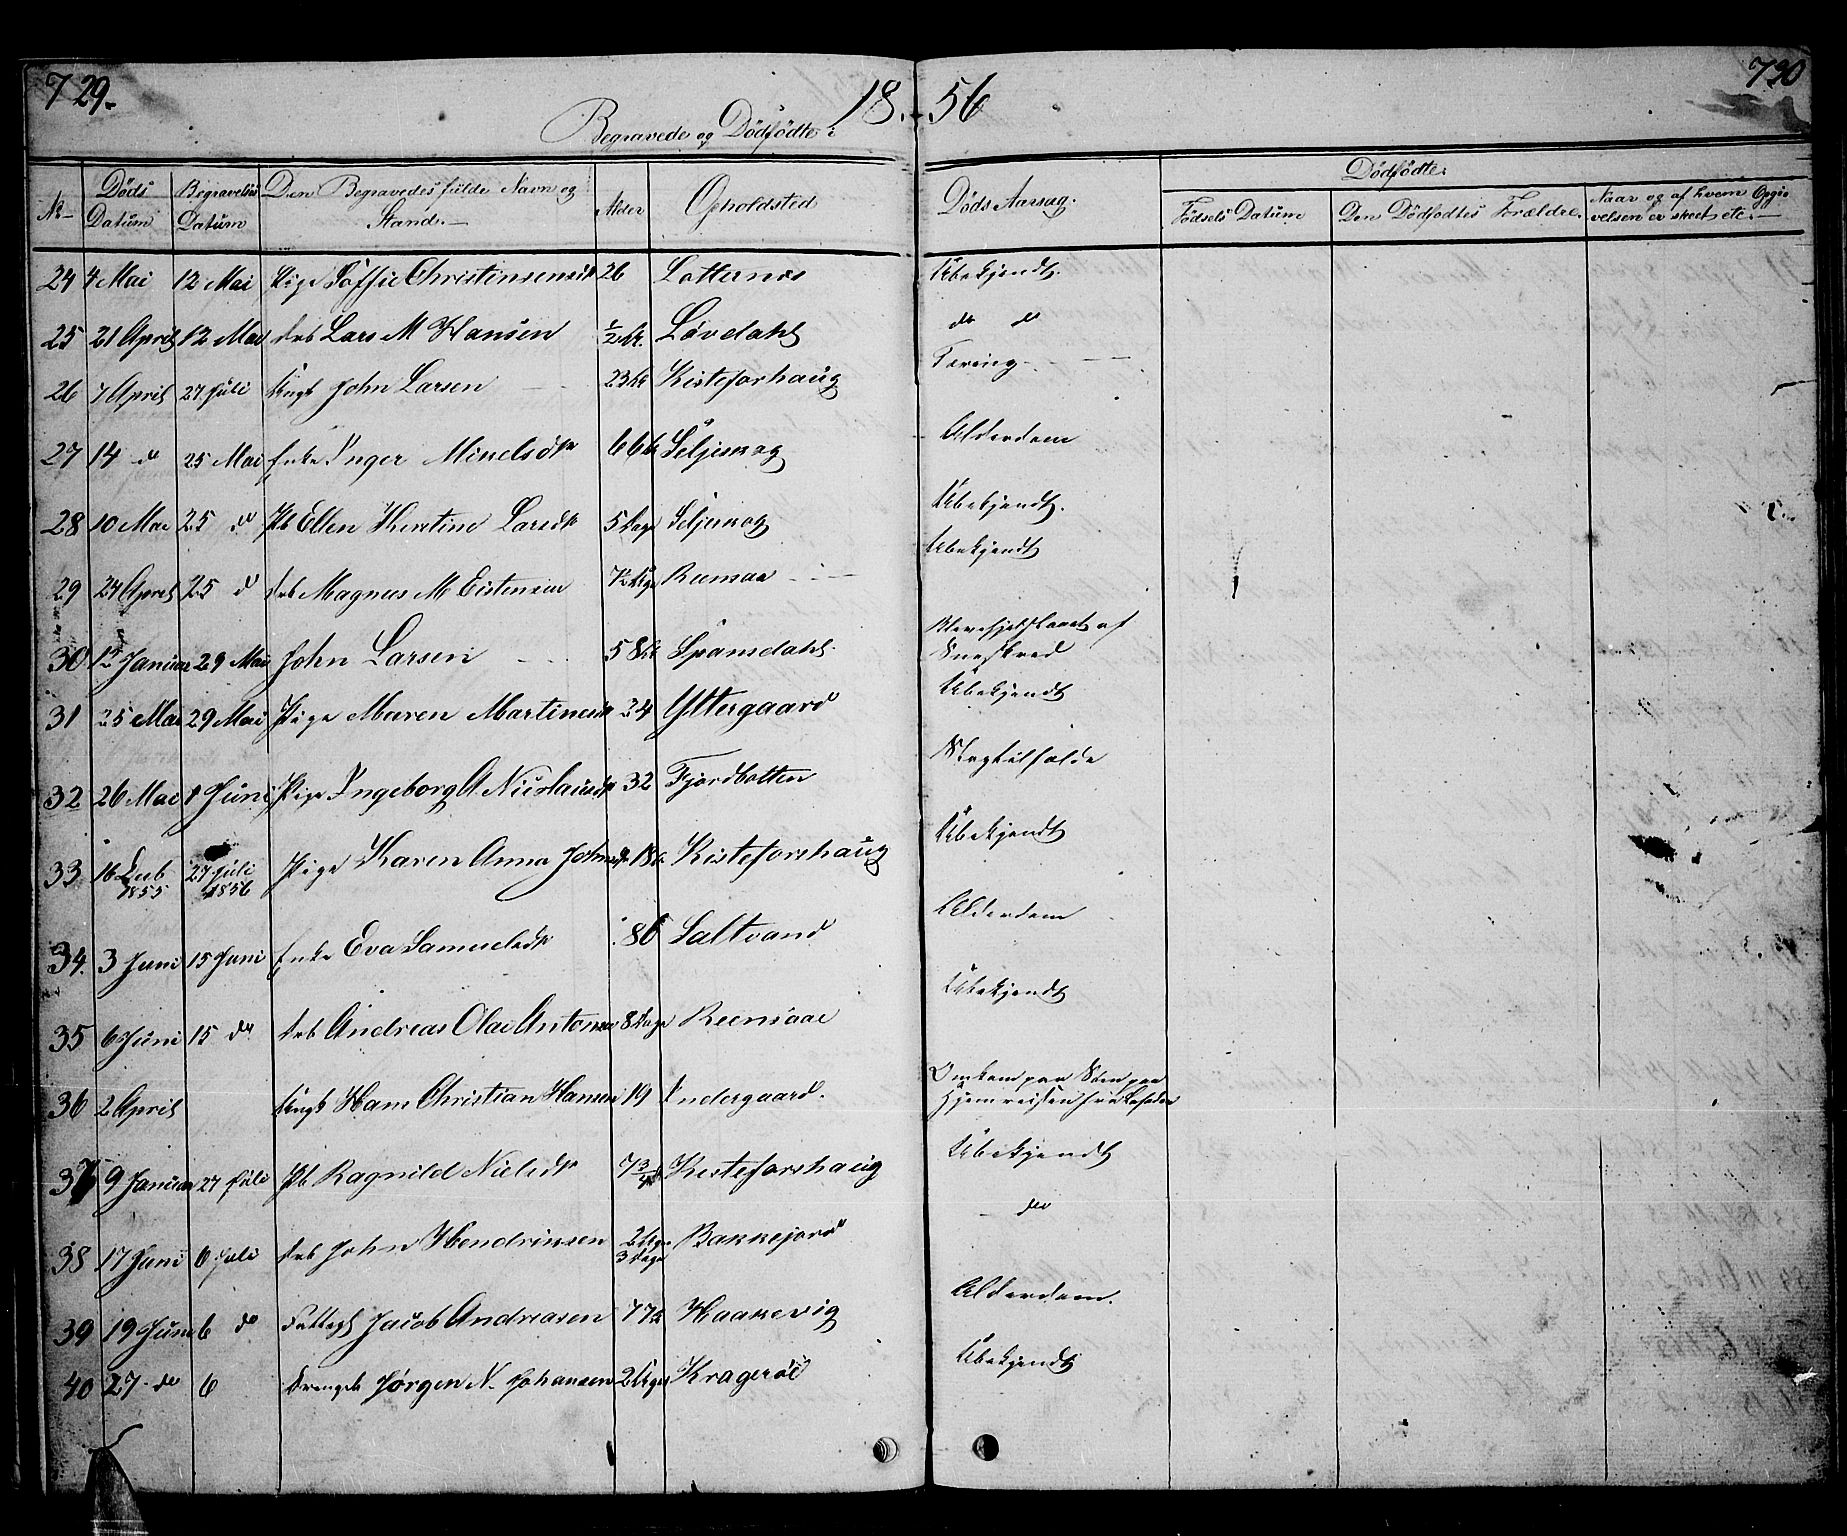 729.
18
56
730
Begravede og Dødfødte:
Dødfødte:
No
Døds Datum
Begravelses Datum
Den Begravedes fulde Navn og Stand.
Alder
Opholdsted
Døds Aarsag.
Fødsels Datum
Den Dødfødtes Forældre.
Naar og af hvem Opgivelsen er skeet etc.
24 4 Mai 12 Mai Pige Christinsensdr 26 Ubekjendt.
25 21 April 12 Mai Drb Lars M Hansen 1/2 Løvdahl do do
26 7 April 27 Juli Ungk John Larsen 23 Kisteforhaug Tæring
27 14 do 25 Mai Enke Inger 66 Seljeskog Alderdom
28 10 Mai 25 do Pb Ellen Kirstine Larsdr 5 Dage Seljeskog Ubekjendt.
29 24 April 25 d Drb Magnus M Eistensen Rumaa Ubekjendt
30 12 Januar 29 Mai John Larsen 58 Spansdahl af
Sneskred
31 25 Mai 29 Mai Pige Maren Martinsdr 24 Yttergaard Ubekjendt
32 26 Mai 1 Juni Pige Ingeborg A. 32 Fjordbotten Slagtilfælde
33 16 1855 27 Juli 1856 Pige Karen Anna Kisteforshaug Ubekjendt
34. 3 Juni 15 Juni Enke Eva Samuelsdr 86 Saltvand Alderdom
35 6 Juni 15 do Drb Andreas Olai Antonsen 8 Dage Reensaae Ubekjendt
36 2 April Ungk Hans Christian Hansen 19 Indergaard. Omkom paa Søen paa
Hjemreisen fra Lofoden
37 9 Januar 27 Juli Pb Ragnild Nielsdr 7 3/4 Kisteforshaug Ubekjendt
38 17 Juni 6 Juli Drb John Hendriksen 2 Uger
3 Dage Bakkejord do
39 19 Juni 6 do Fattigl Jacob Andreasen 77 Haakevig Alderdom.
40 27 do 6 Drengeb Jørgen N. Johansen 2 Uger Kragerøe Ubekjendt